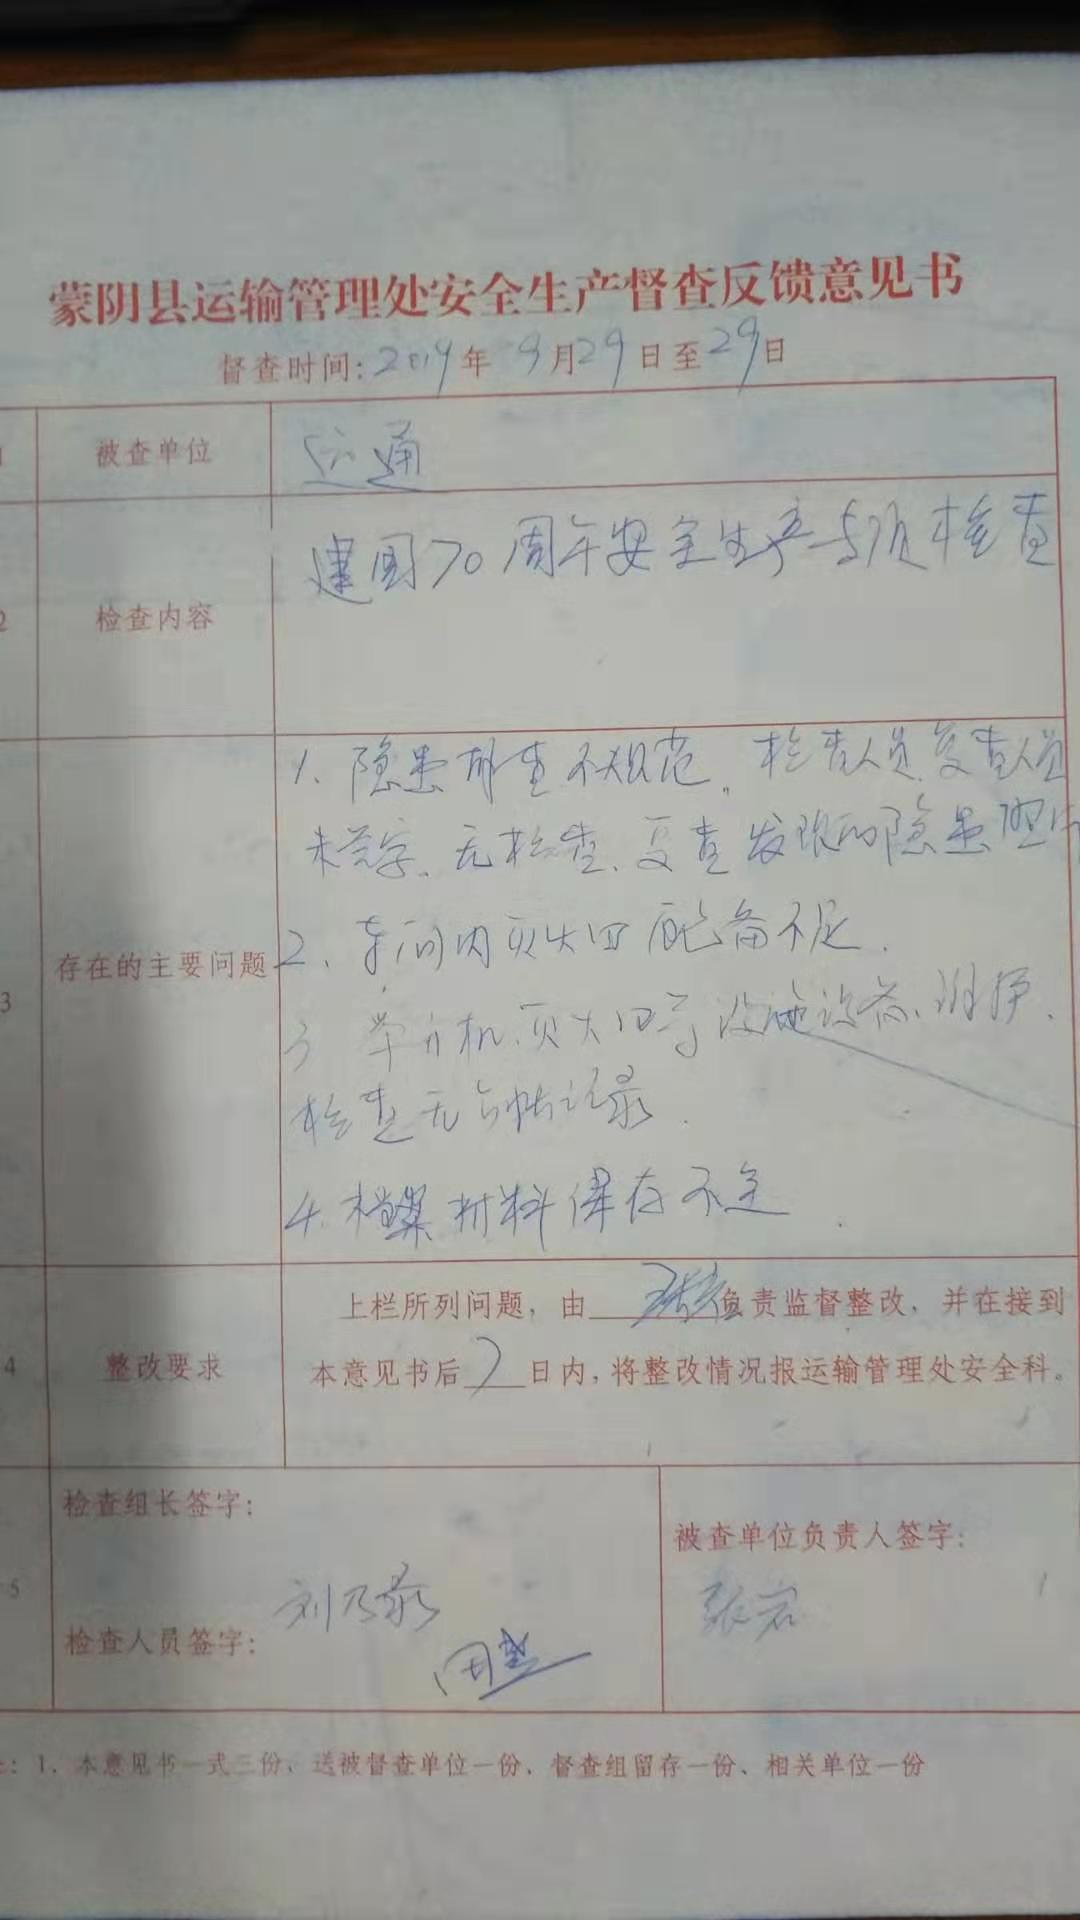 蒙阴县运输管理处安全生产督查反馈意见书
督查时间:2019年 9月29日至29日
被查单位 运通
2 检查内容 建国70周年安全生产专项检查
3 存在的主要问题
1、隐患排查不规范,检查人员、复查人员
未签字、无检查、复查发现的隐患照片
2、车间内灭火四配备不足.
3 举升机、灭火四等设施设备、维护、
检查无台帐记录.
4.档案材料保存不全.
4 整改要求
上栏所列问题,由 负责监督整改,并在接到
本意见书后7日内,将整改情况报运输管理处安全科。
5 检查组长签字:
被查单位负责人签字:
刘乃录
张岩
检查人员签字:
:1.本意见书一式三份、送被督查单位一份、督查组留存一份、相关单位一份